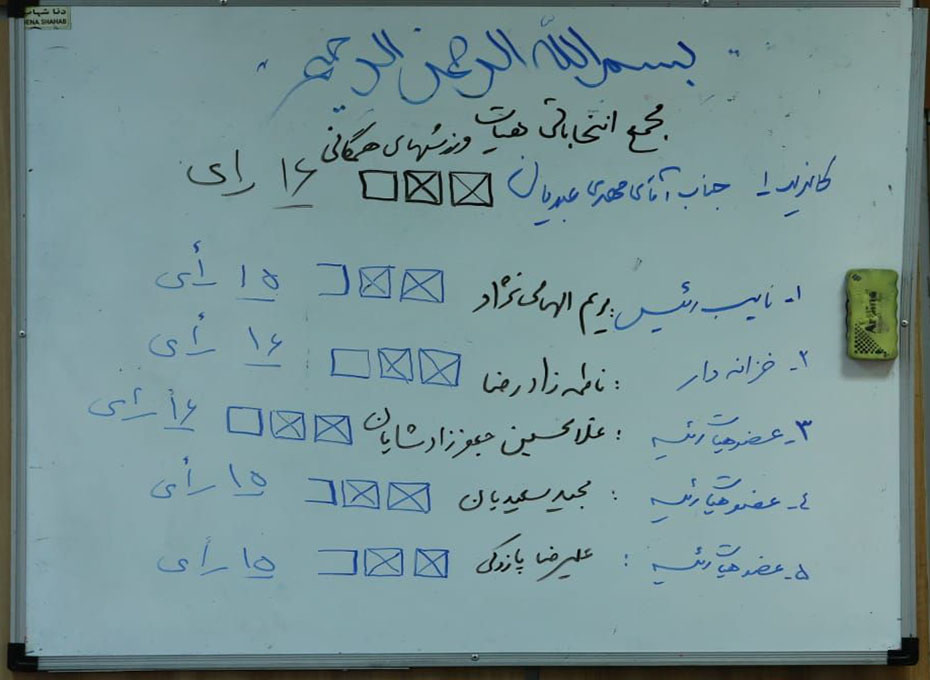 دنا شهاب
DENA SHAHAB
" بسم الله الرحمن الرحیم "
مجمع انتخاباتی هیات ورزشهای همگانی
کاندید ۱ جناب آقای مهدی عبدیان ۱۶ رای
۱- نایب رئیس: مریم الهامی نژاد ۱۵ رأی
۲- خزانه دار : فاطمه زادرضا ۱۶ رأی
۳- عضو هیات رئیسه : غلامحسین جعفرزاد شایان ۱۶ رأی
٤- عضو هیات رئیسه : مجید سعیدیان ۱۵ رأی
۵- عضو هیات رئیسه : علیرضا پازوکی ۱۵ رأی